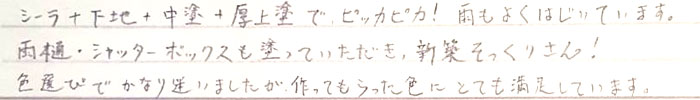 シーラ+下地+中塗+厚上塗で、ピッカピカ! 雨もよくはじいています。
雨樋・シャッターボックスも塗っていただき、新築そっくりさん!
色選びでかなり迷いましたが、作ってもらった色にとても満足しています。